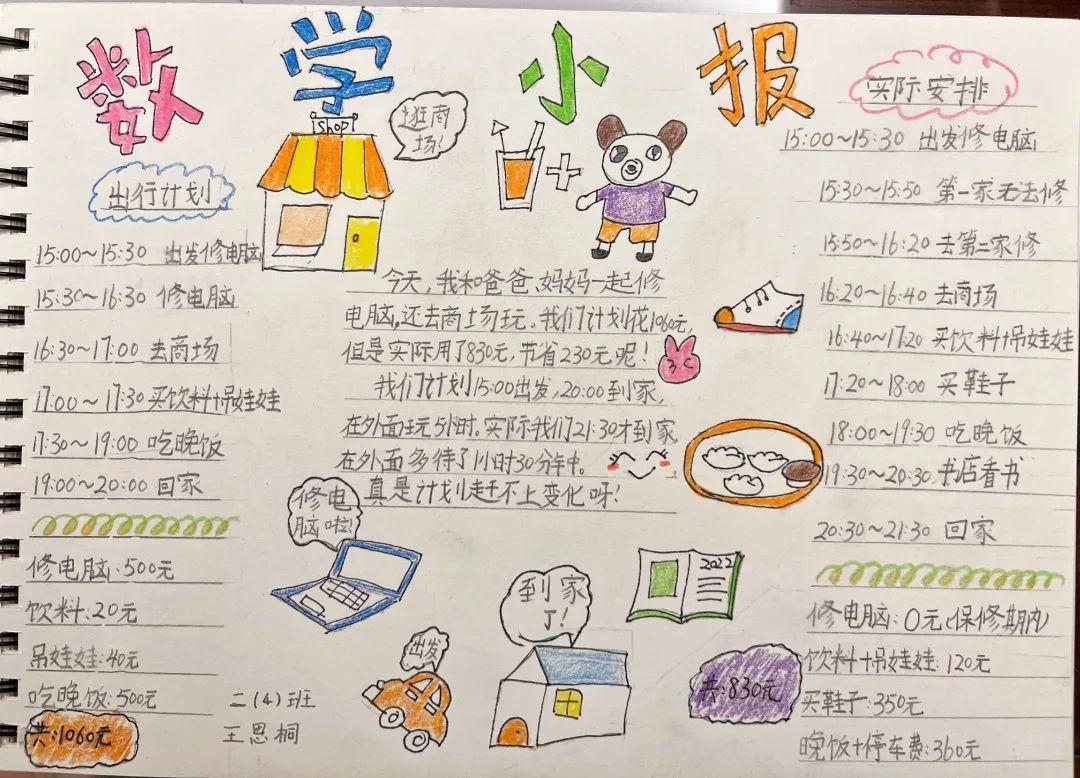 数学小报
shop
逛商
场!
出行计划
15:00~15:30 出发修电脑
15:30~16:30 修电脑
16:30~17:00 去商场
17:00~17:30 买饮料+吊娃娃
17:30~19:00 吃晚饭
19:00~20:00 回家
修电脑:500元
饮料:20元
吊娃娃:40元
吃晚饭:500元
共:1060元
今天,我和爸爸、妈妈一起修
电脑,还去商场玩。我们计划花1060元,
但是实际用了830元,节省230元呢!
我们计划15:00出发,20:00到家,
在外面玩5小时。实际我们21:30才到家
在外面多待了1小时30分钟。
真是计划赶不上变化呀!
修电
脑啦!
出发
到家
了!
2022
二(4)班
王恩桐
实际安排
15:00~15:30 出发修电脑
15:30~15:50 第一家无法修
15:50~16:20 去第二家修
16:20~16:40 去商场
16:40~17:20 买饮料+吊娃娃
17:20~18:00 买鞋子
18:00~19:30 吃晚饭
19:30~20:30 书店看书
20:30~21:30 回家
修电脑:0元(保修期内)
饮料+吊娃娃:120元
买鞋子:350元
晚饭+停车费:360元
共:830元